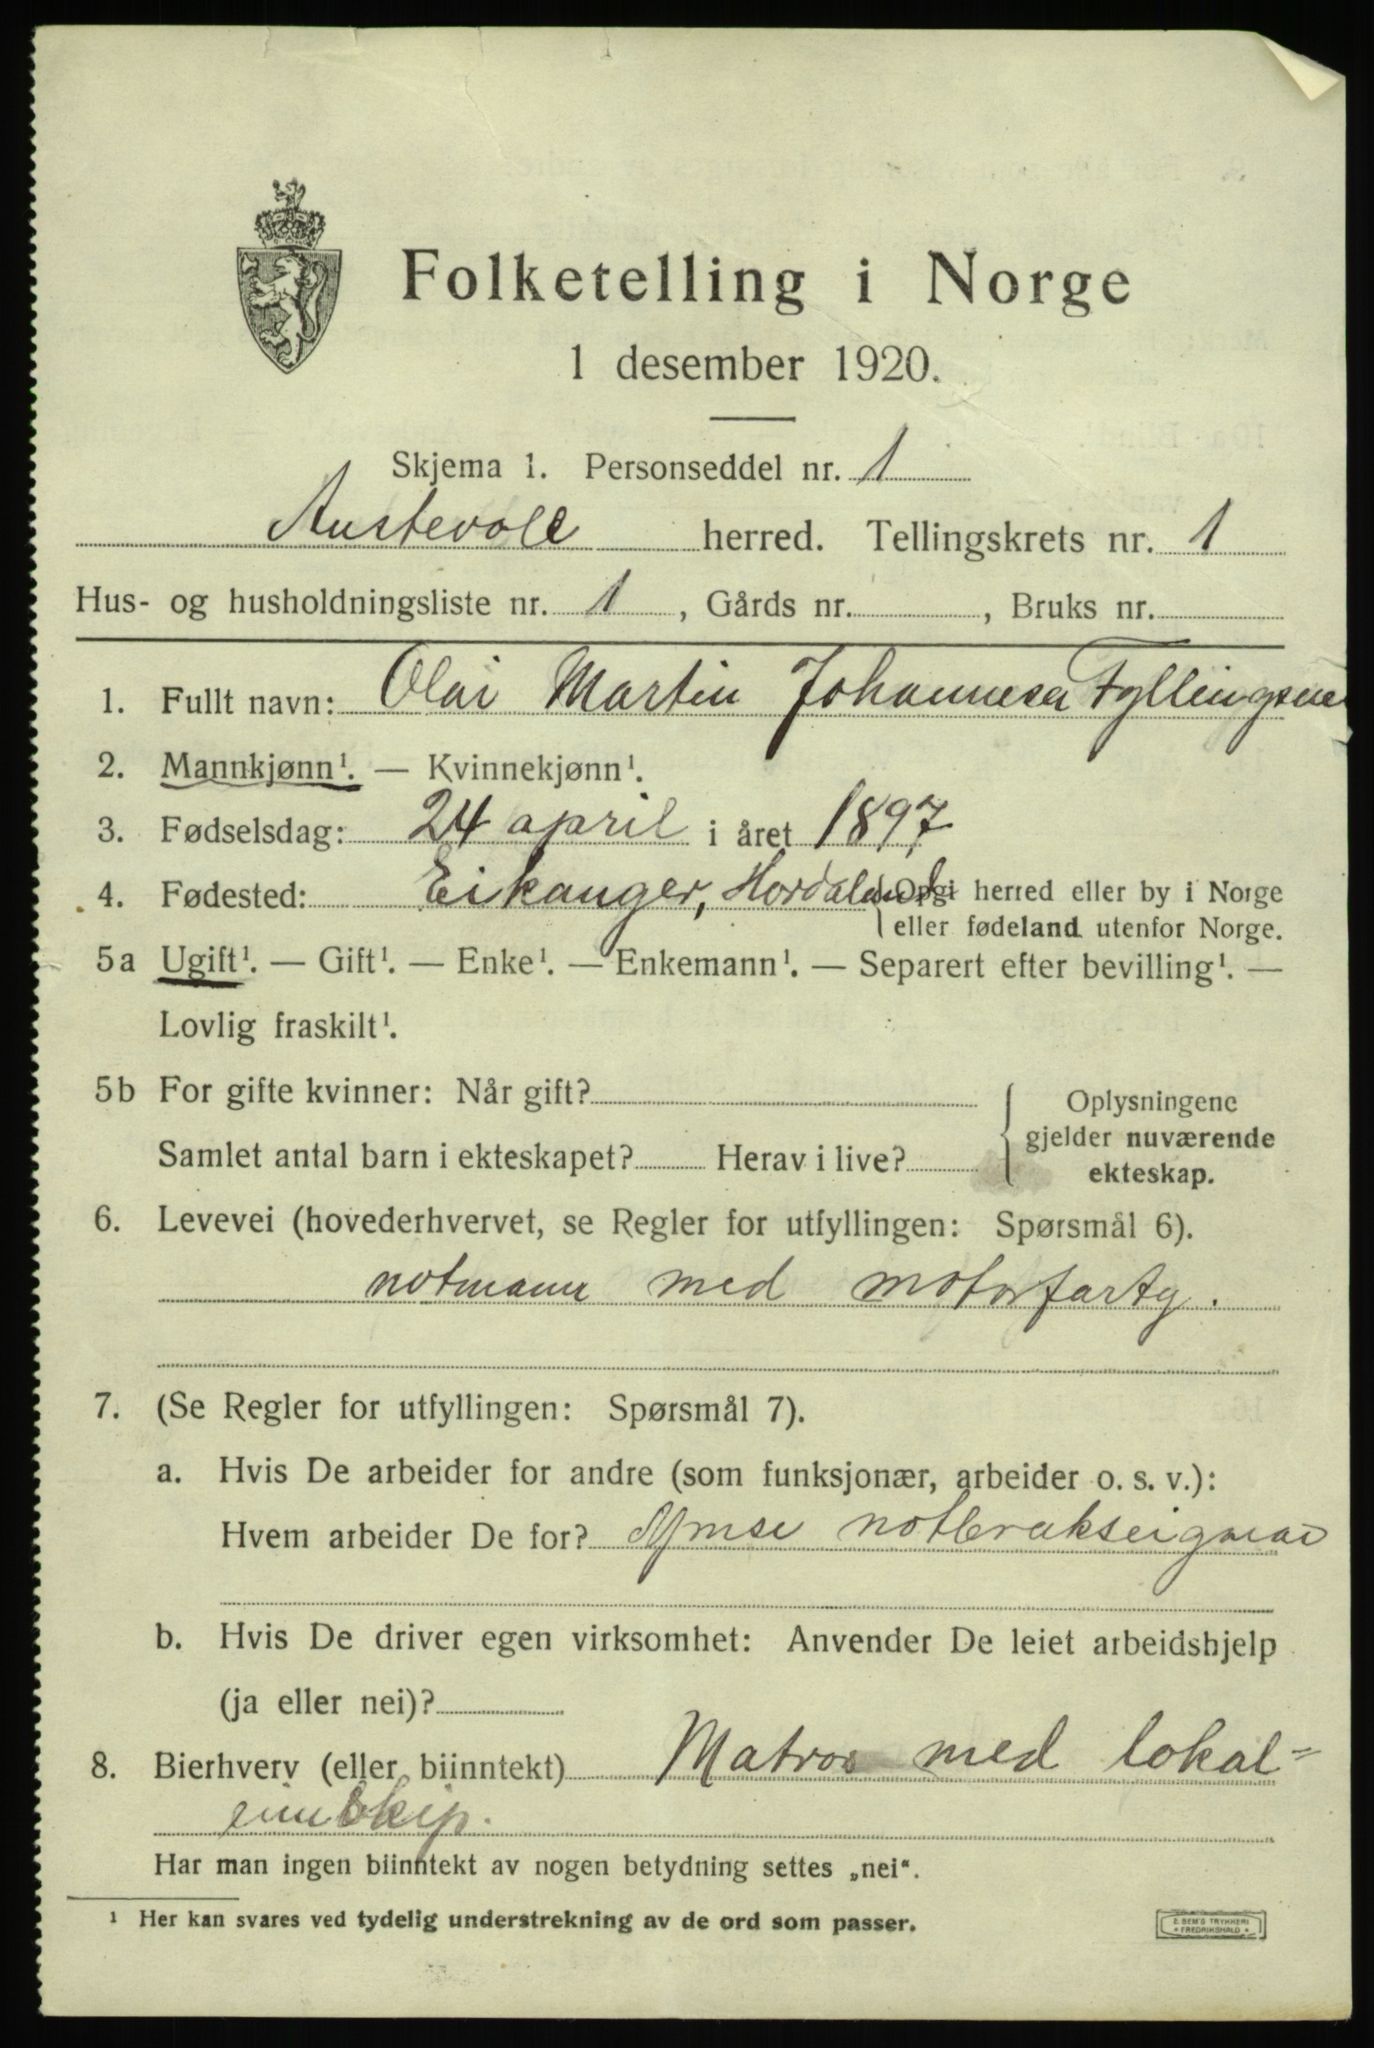 Folketelling i Norge
1 desember 1920.
Skjema 1. Personseddel nr. 1
Austevoll herred. Tellingskrets nr. 1
Hus- og husholdningsliste nr. 1, Gårds nr. , Bruks nr.
1. Fullt navn: Olai Martin Johannesen Fyllingsnes
2. Mannkjønn¹. — Kvinnekjønn¹.
3. Fødselsdag: 24 april i året 1897
4. Fødested: Eikanger, Hordaland {Opgi herred eller by i Norge
eller fødeland utenfor Norge.
5a Ugift¹. — Gift¹. — Enke¹. — Enkemann¹. — Separert efter bevilling¹. —
Lovlig fraskilt¹.
5b For gifte kvinner: Når gift?
Samlet antal barn i ekteskapet? Herav i live?
{ Oplysningene
gjelder nuværende
ekteskap.
6. Levevei (hovederhvervet, se Regler for utfyllingen: Spørsmål 6).
notmann med motorfarty.
7. (Se Regler for utfyllingen: Spørsmål 7).
a. Hvis De arbeider for andre (som funksjonær, arbeider o. s. v.):
Hvem arbeider De for? Ymse notbrukseigarar
b. Hvis De driver egen virksomhet: Anvender De leiet arbeidshjelp
(ja eller nei)?
8. Bierhverv (eller biinntekt) Matros med lokal-
skip.
Har man ingen biinntekt av nogen betydning settes „nei“.
¹ Her kan svares ved tydelig understrekning av de ord som passer.
E. SEM'S TRYKKERI
FREDRIKSHALD